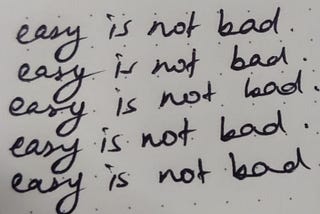 easy is not bad.
easy is not bad.
easy is not bad.
easy is not bad.
easy is not bad.